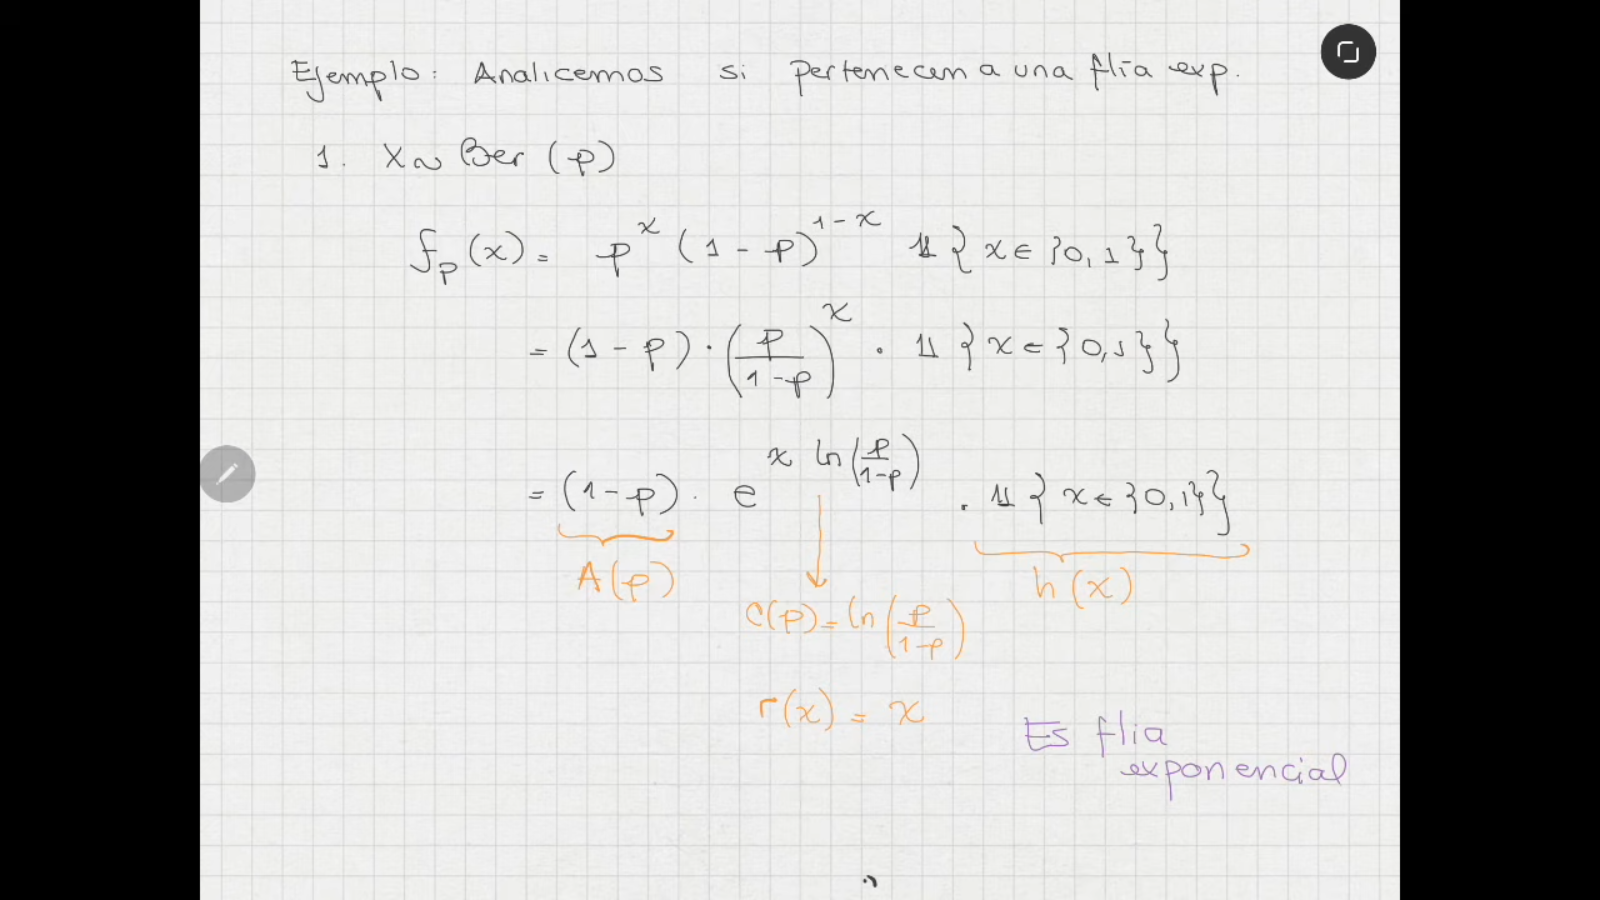 Ejemplo: Analicemos si pertenecen a una flia exp.
1. X ~ Ber (p)
f_p(x) = p^x (1-p)^{1-x} 𝟙{x ∈ {0,1}}
= (1-p) · (p/(1-p))^x · 𝟙{x ∈ {0,1}}
= (1-p) · e^{x ln(p/(1-p))} · 𝟙{x ∈ {0,1}}
A(p) h(x)
C(p) = ln(p/(1-p))
r(x) = x
Es flia
exponencial